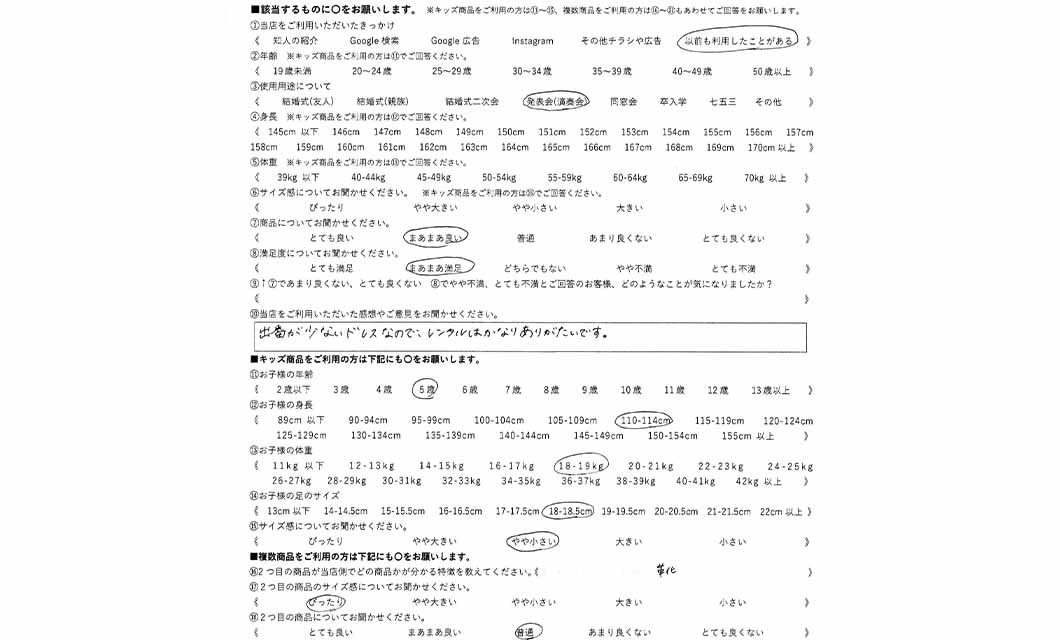 ■該当するものに〇をお願いします。 ※キッズ商品をご利用の方は⑪～⑮、複数商品をご利用の方は⑯～⑳もあわせてご回答をお願いします。
①当店をご利用いただいたきっかけ
《 知人の紹介 Google 検索 Google 広告 Instagram その他チラシや広告 以前も利用したことがある 》
②年齢 ※キッズ商品をご利用の方は⑪でご回答ください。
《 19歳未満 20～24歳 25～29歳 30～34歳 35～39歳 40～49歳 50歳以上 》
③使用用途について
《 結婚式(友人) 結婚式(親族) 結婚式二次会 発表会(演奏会) 同窓会 卒入学 七五三 その他 》
④身長 ※キッズ商品をご利用の方は⑫でご回答ください。
《 145cm 以下 146cm 147cm 148cm 149cm 150cm 151cm 152cm 153cm 154cm 155cm 156cm 157cm
158cm 159cm 160cm 161cm 162cm 163cm 164cm 165cm 166cm 167cm 168cm 169cm 170cm 以上 》
⑤体重 ※キッズ商品をご利用の方は⑬でご回答ください。
《 39kg 以下 40-44kg 45-49kg 50-54kg 55-59kg 60-64kg 65-69kg 70kg 以上 》
⑥サイズ感についてお聞かせください。 ※キッズ商品をご利用の方は⑮でご回答ください。
《 ぴったり やや大きい やや小さい 大きい 小さい 》
⑦商品についてお聞かせください。
《 とても良い まあまあ良い 普通 あまり良くない とても良くない 》
⑧満足度についてお聞かせください。
《 とても満足 まあまあ満足 どちらでもない やや不満 とても不満 》
⑨↑⑦であまり良くない、とても良くない ⑧でやや不満、とても不満とご回答のお客様、どのようなことが気になりましたか？
《 》
⑩当店をご利用いただいた感想やご意見をお聞かせください。
出番が少ないドレスなので、レンタルはかなりありがたいです。
■キッズ商品をご利用の方は下記にも〇をお願いします。
⑪お子様の年齢
《 2歳以下 3歳 4歳 5歳 6歳 7歳 8歳 9歳 10歳 11歳 12歳 13歳以上 》
⑫お子様の身長
《 89cm 以下 90-94cm 95-99cm 100-104cm 105-109cm 110-114cm 115-119cm 120-124cm
125-129cm 130-134cm 135-139cm 140-144cm 145-149cm 150-154cm 155cm 以上 》
⑬お子様の体重
《 11kg 以下 12-13kg 14-15kg 16-17kg 18-19kg 20-21kg 22-23kg 24-25kg
26-27kg 28-29kg 30-31kg 32-33kg 34-35kg 36-37kg 38-39kg 40-41kg 42kg 以上 》
⑭お子様の足のサイズ
《 13cm 以下 14-14.5cm 15-15.5cm 16-16.5cm 17-17.5cm 18-18.5cm 19-19.5cm 20-20.5cm 21-21.5cm 22cm 以上 》
⑮サイズ感についてお聞かせください。
《 ぴったり やや大きい やや小さい 大きい 小さい 》
■複数商品をご利用の方は下記にも〇をお願いします。
⑯2つ目の商品が当店側でどの商品かが分かる特徴を教えてください。《 革靴 》
⑰2つ目の商品のサイズ感についてお聞かせください。
《 ぴったり やや大きい やや小さい 大きい 小さい 》
⑱2つ目の商品についてお聞かせください。
《 とても良い まあまあ良い 普通 あまり良くない とても良くない 》